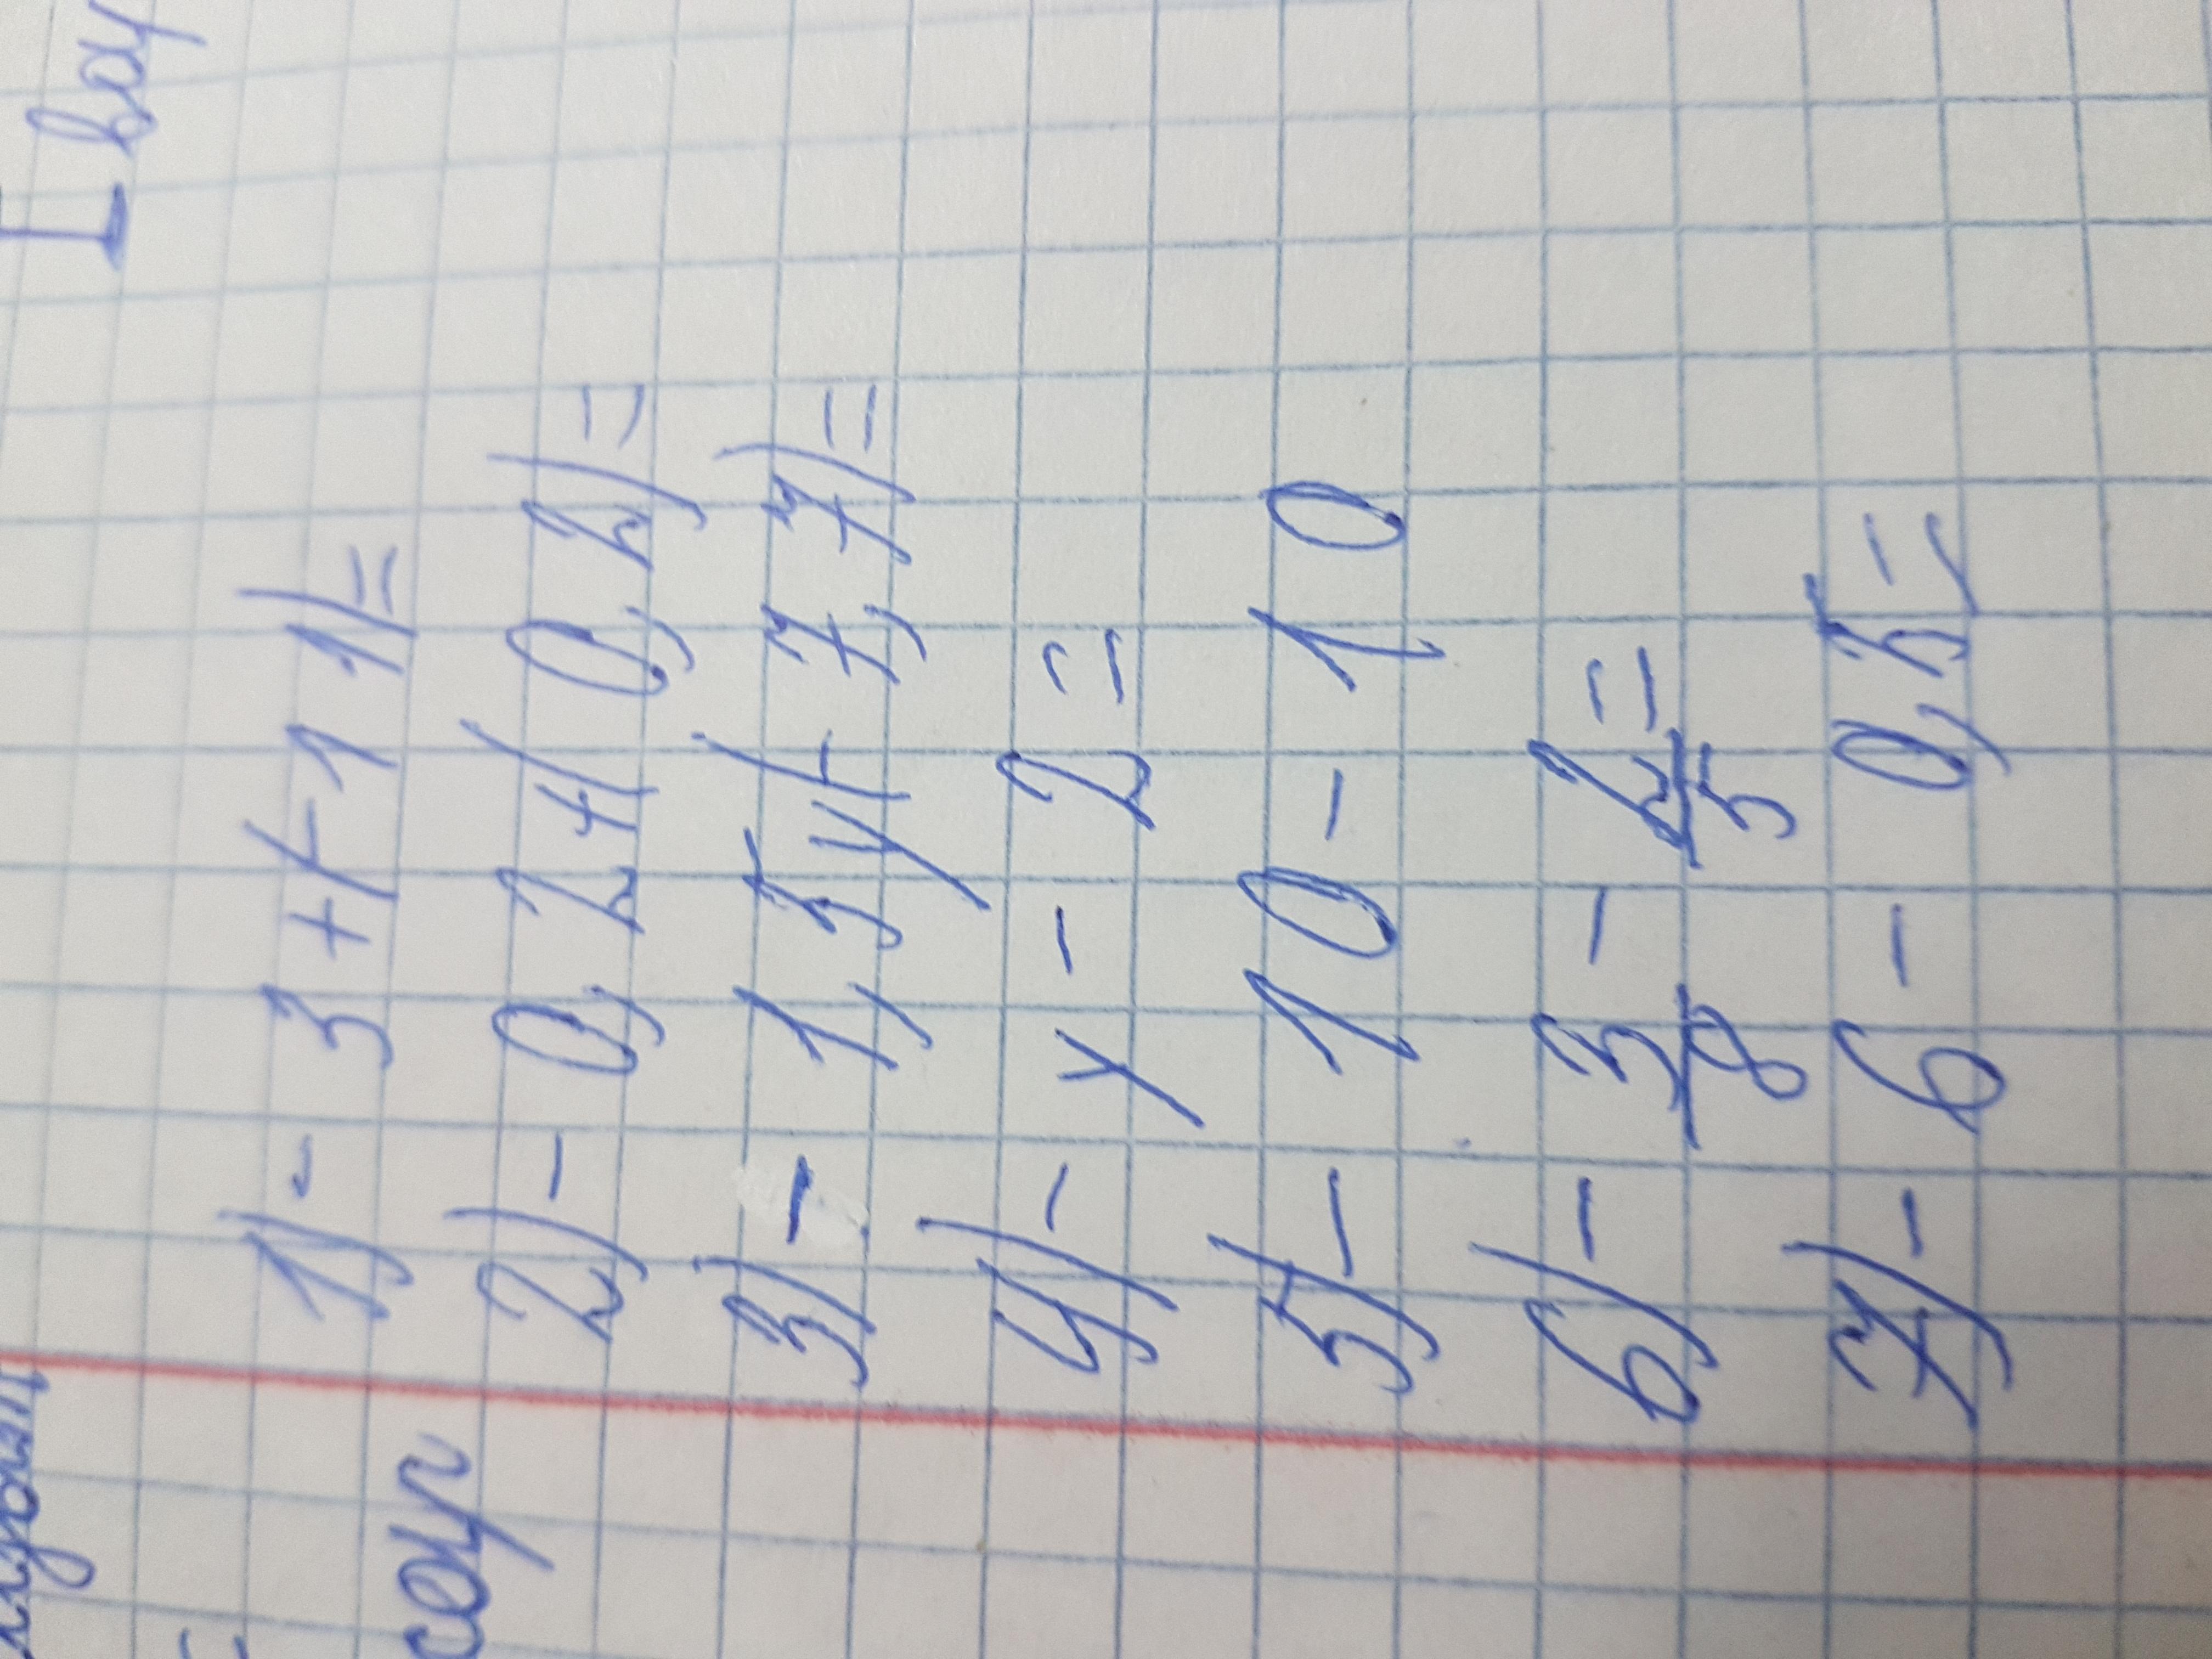 I вар
1) - 3 + (- 11) =
2) - 0,2 + (0,2) =
3) - 1,34(- 7,7) =
4) - 4 - 2 =
5) - 10 - 10
6) - 3/8 - 2/5 =
7) - 6 - 0,5 =